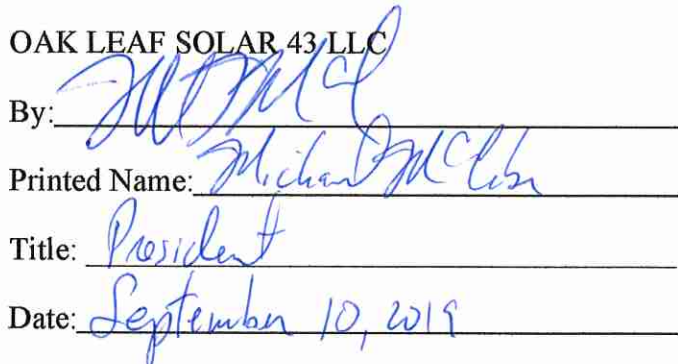 OAK LEAF SOLAR 43 LLC
By:
Printed Name: Michael McCabe
Title: President
Date: September 10, 2019